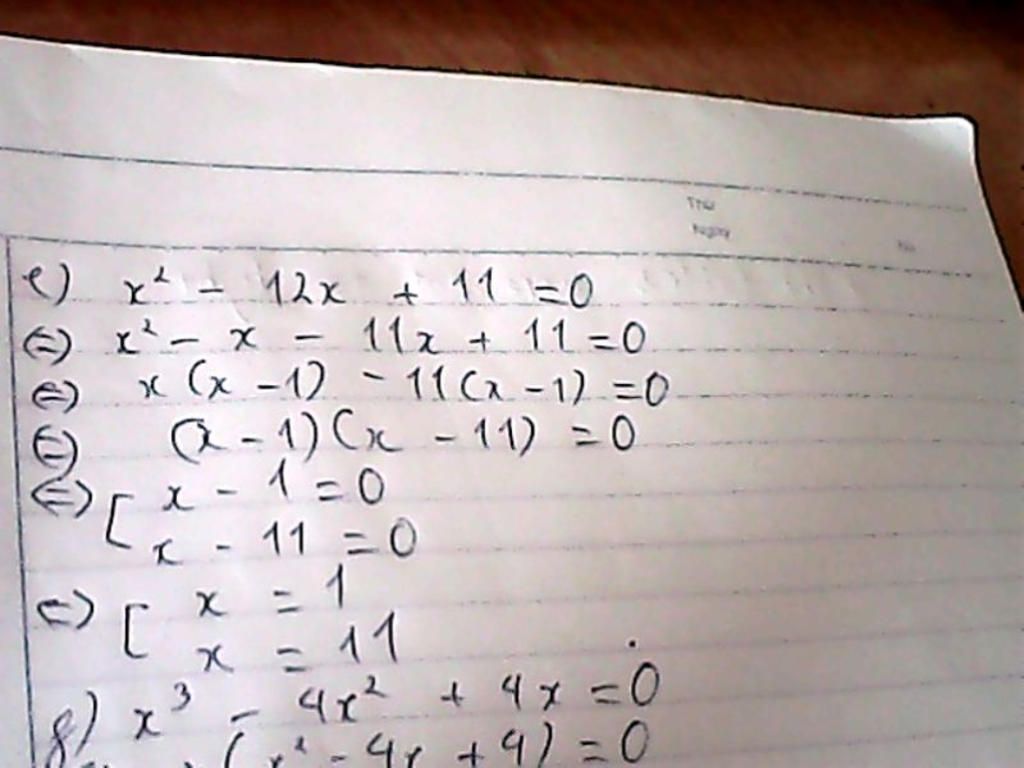 Thứ
Ngày
No
e) x² - 12x + 11 = 0
⇔ x² - x - 11x + 11 = 0
⇔ x (x - 1) - 11(x - 1) = 0
⇔ (x - 1)(x - 11) = 0
⇔ [ x - 1 = 0
x - 11 = 0
⇔ [ x = 1
x = 11
g) x³ - 4x² + 4x = 0
(x² - 4x + 4) = 0